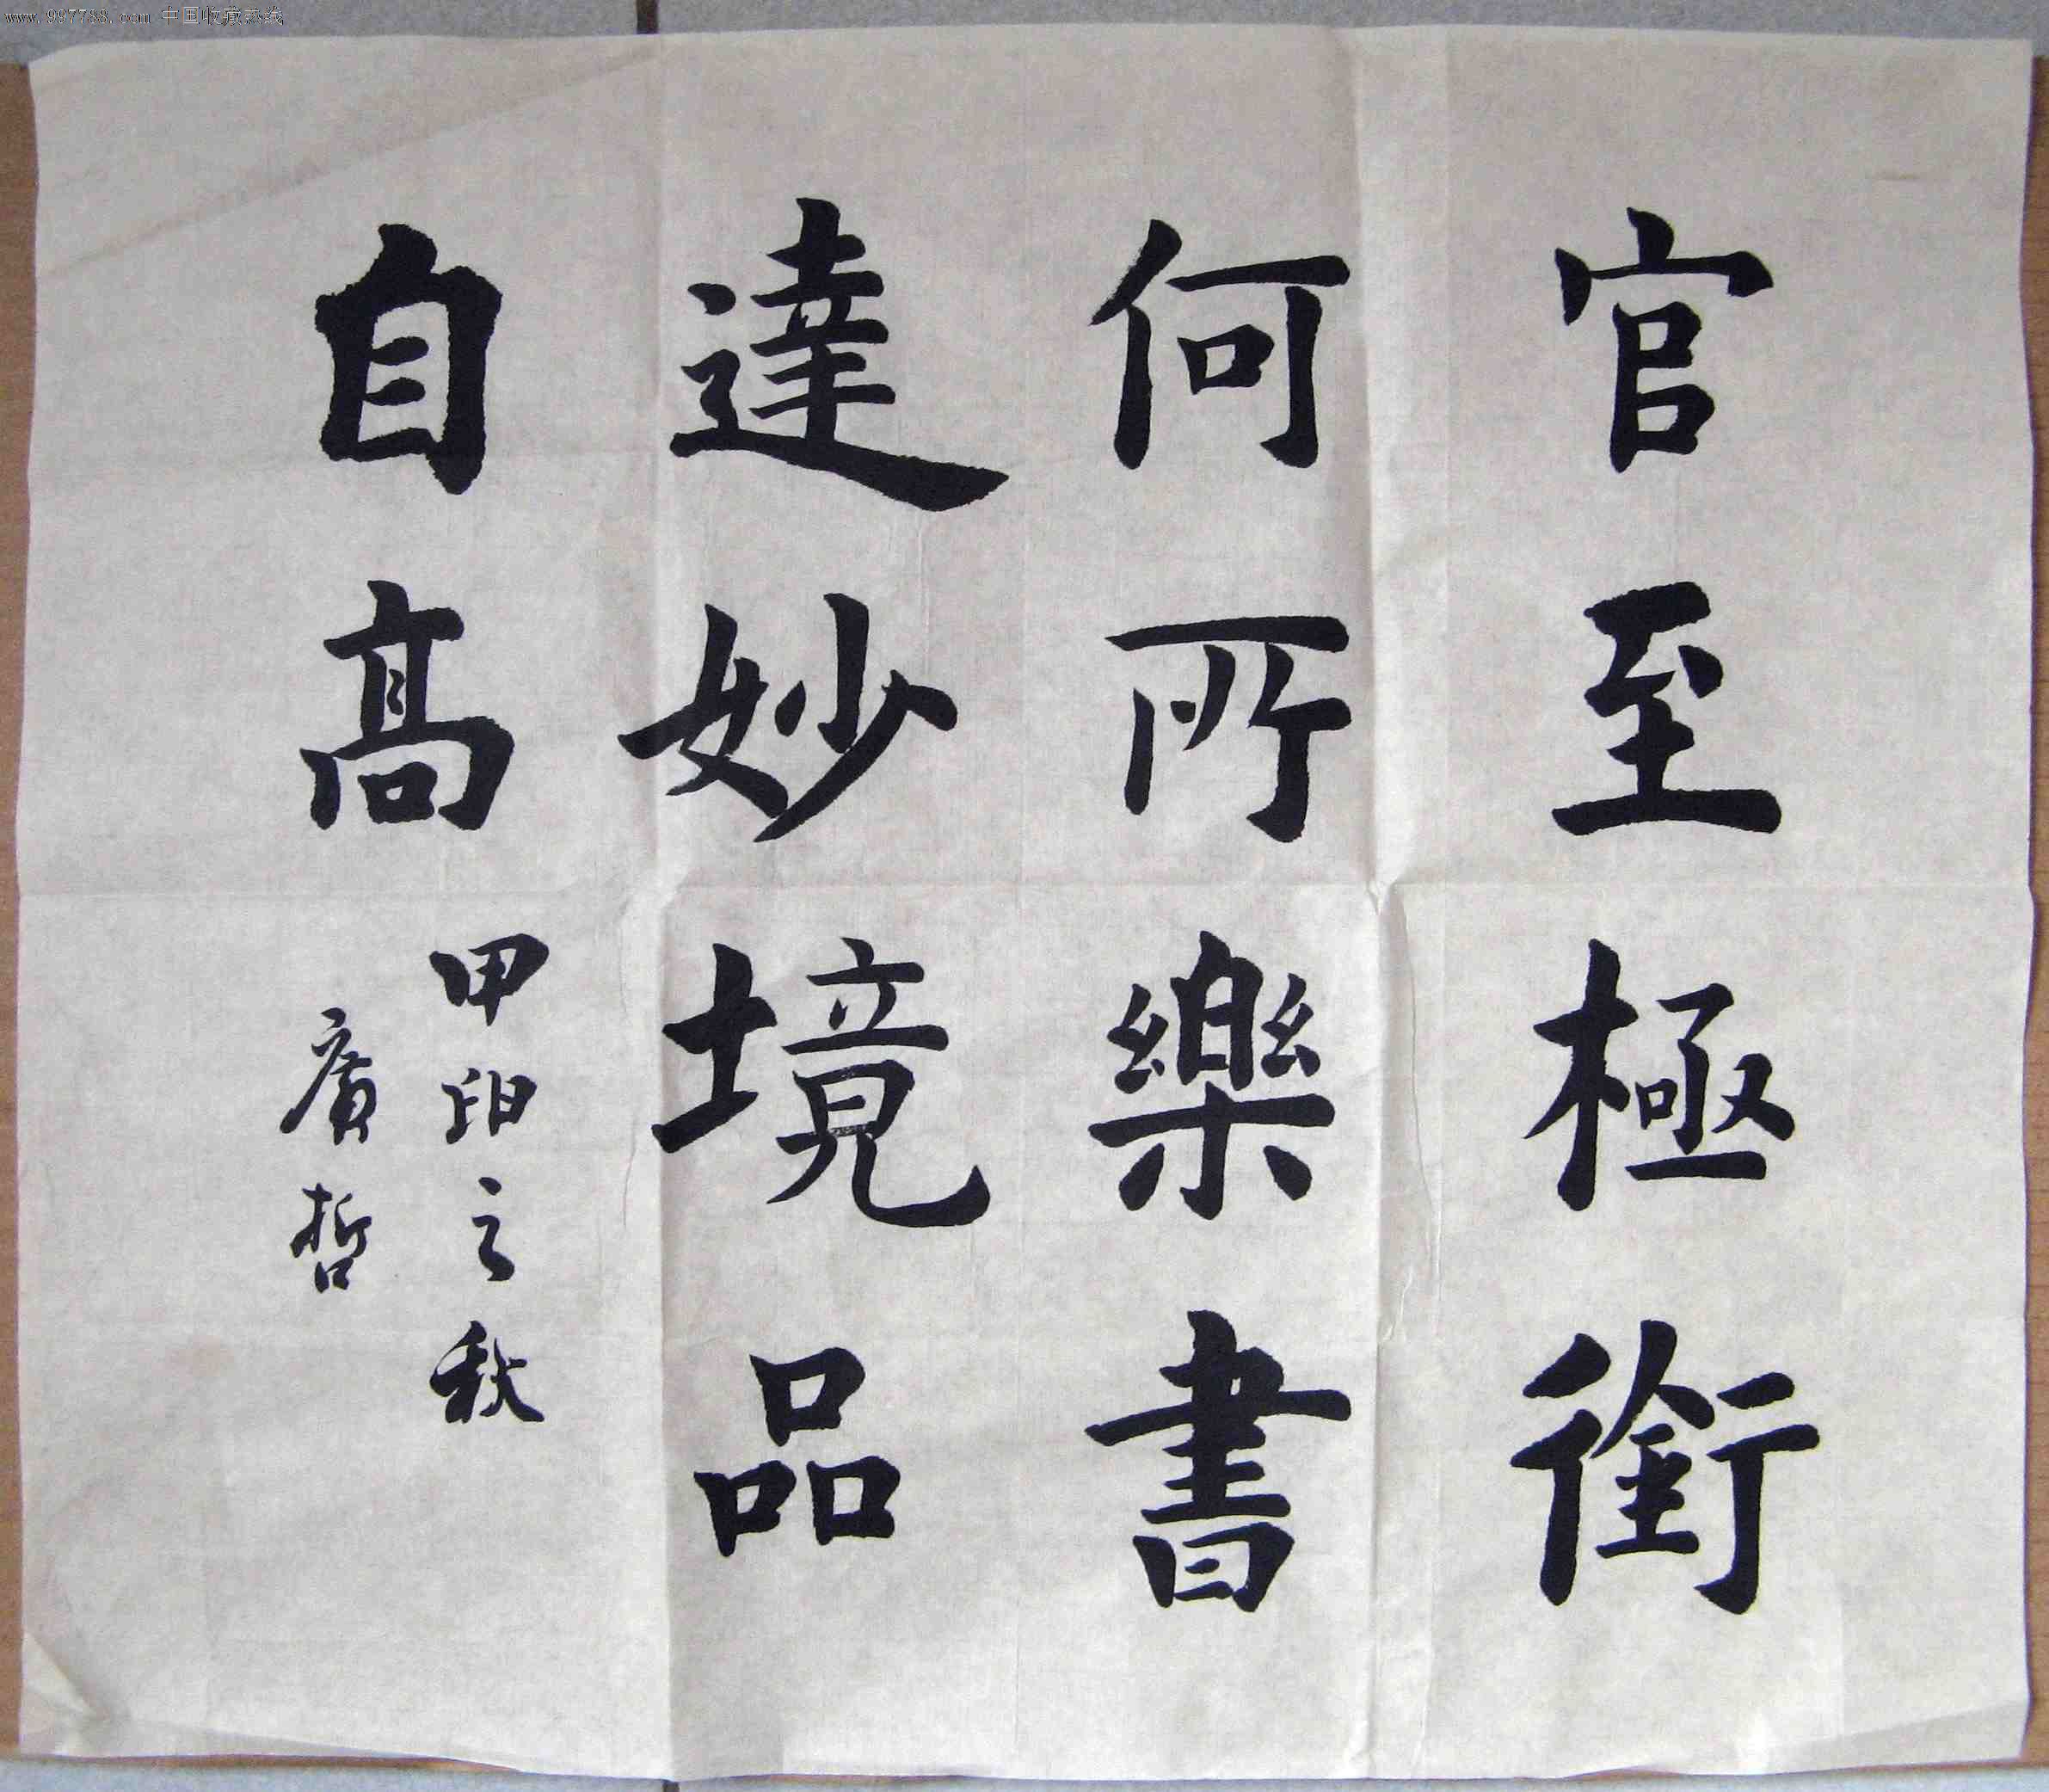 www.997788.com 中国收藏热线
官至極銜
何所樂書
達妙境品
自高
甲之秋
廣哲